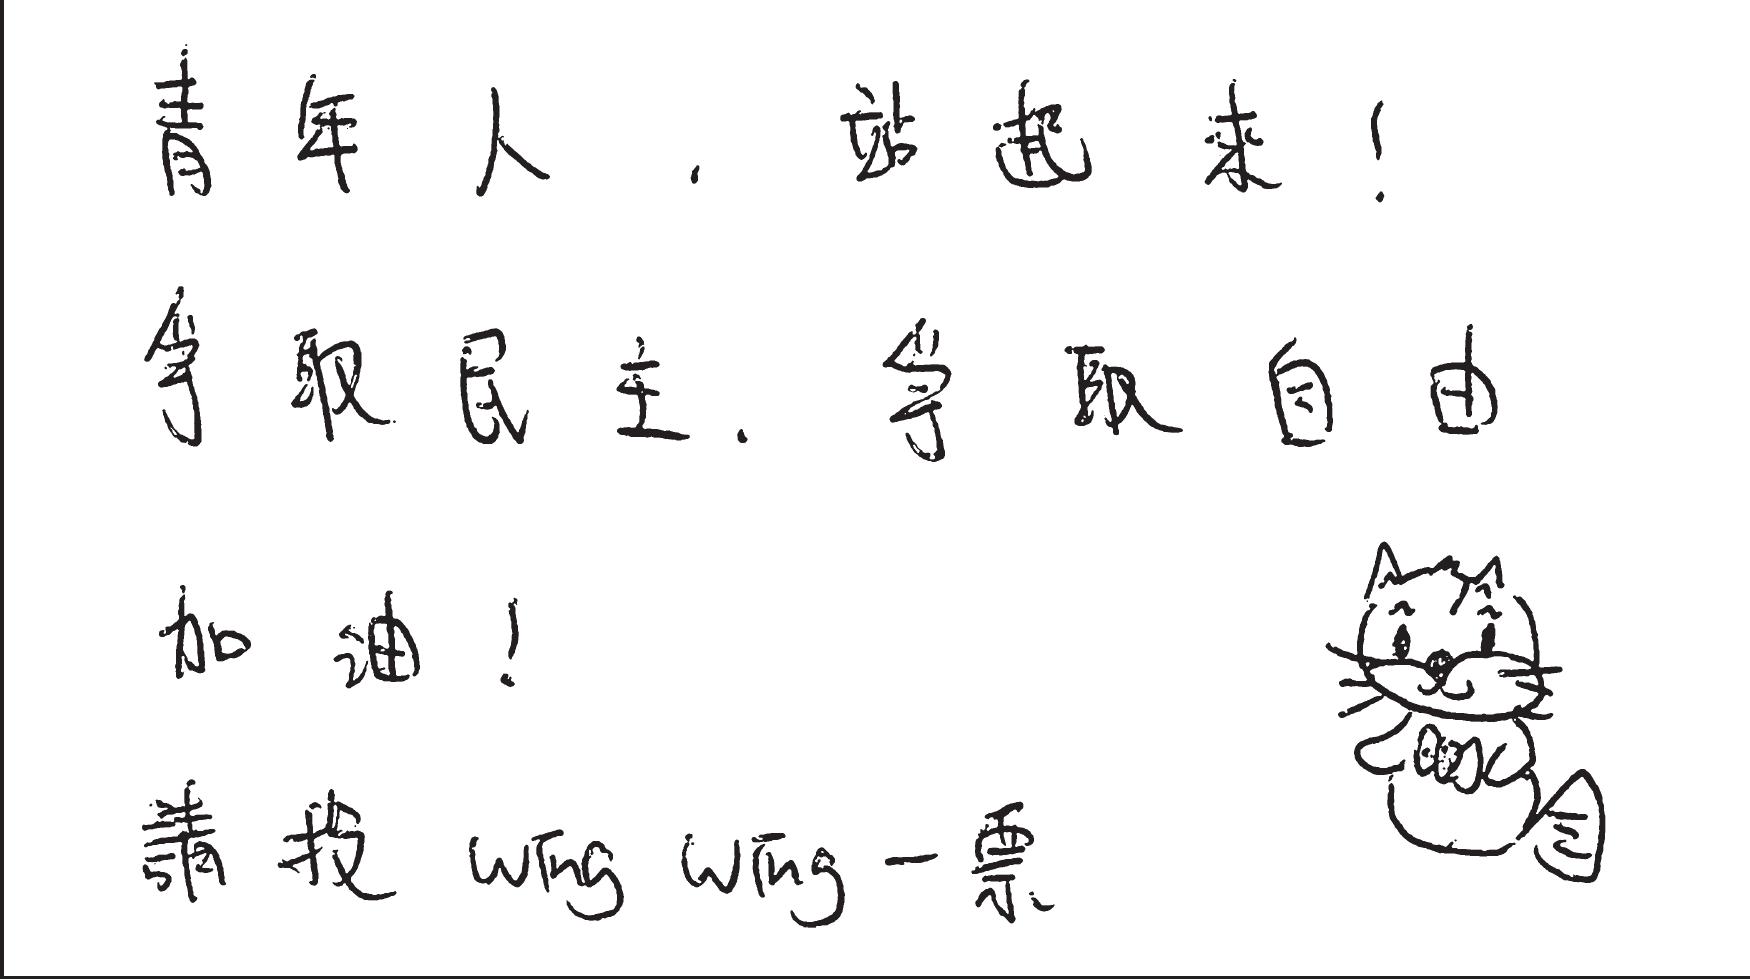 青年人，站起来！
争取民主，争取自由
加油！
請投 wing wing 一票